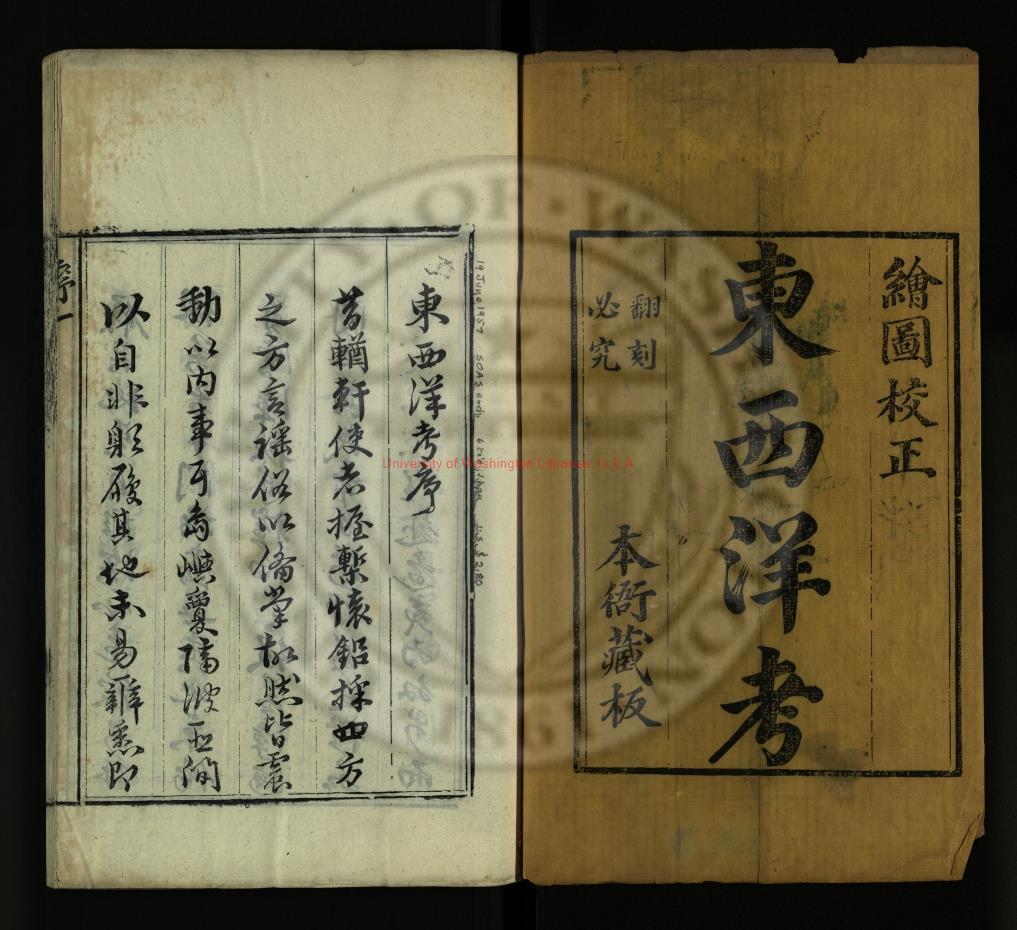 繪圖校正
東西洋考
本衙藏板
翻刻
必究
東西洋考序
昔輶軒使者握槧懷鉛採四方
之方言謡俗以俻掌故然皆震
勦以內事耳島嶼敻隔波臣間
以自非躬履其地未易雜悉即
序一
19 June 1957 SOAS exch.
U.S. $2.80
University of Washington Libraries, U.S.A